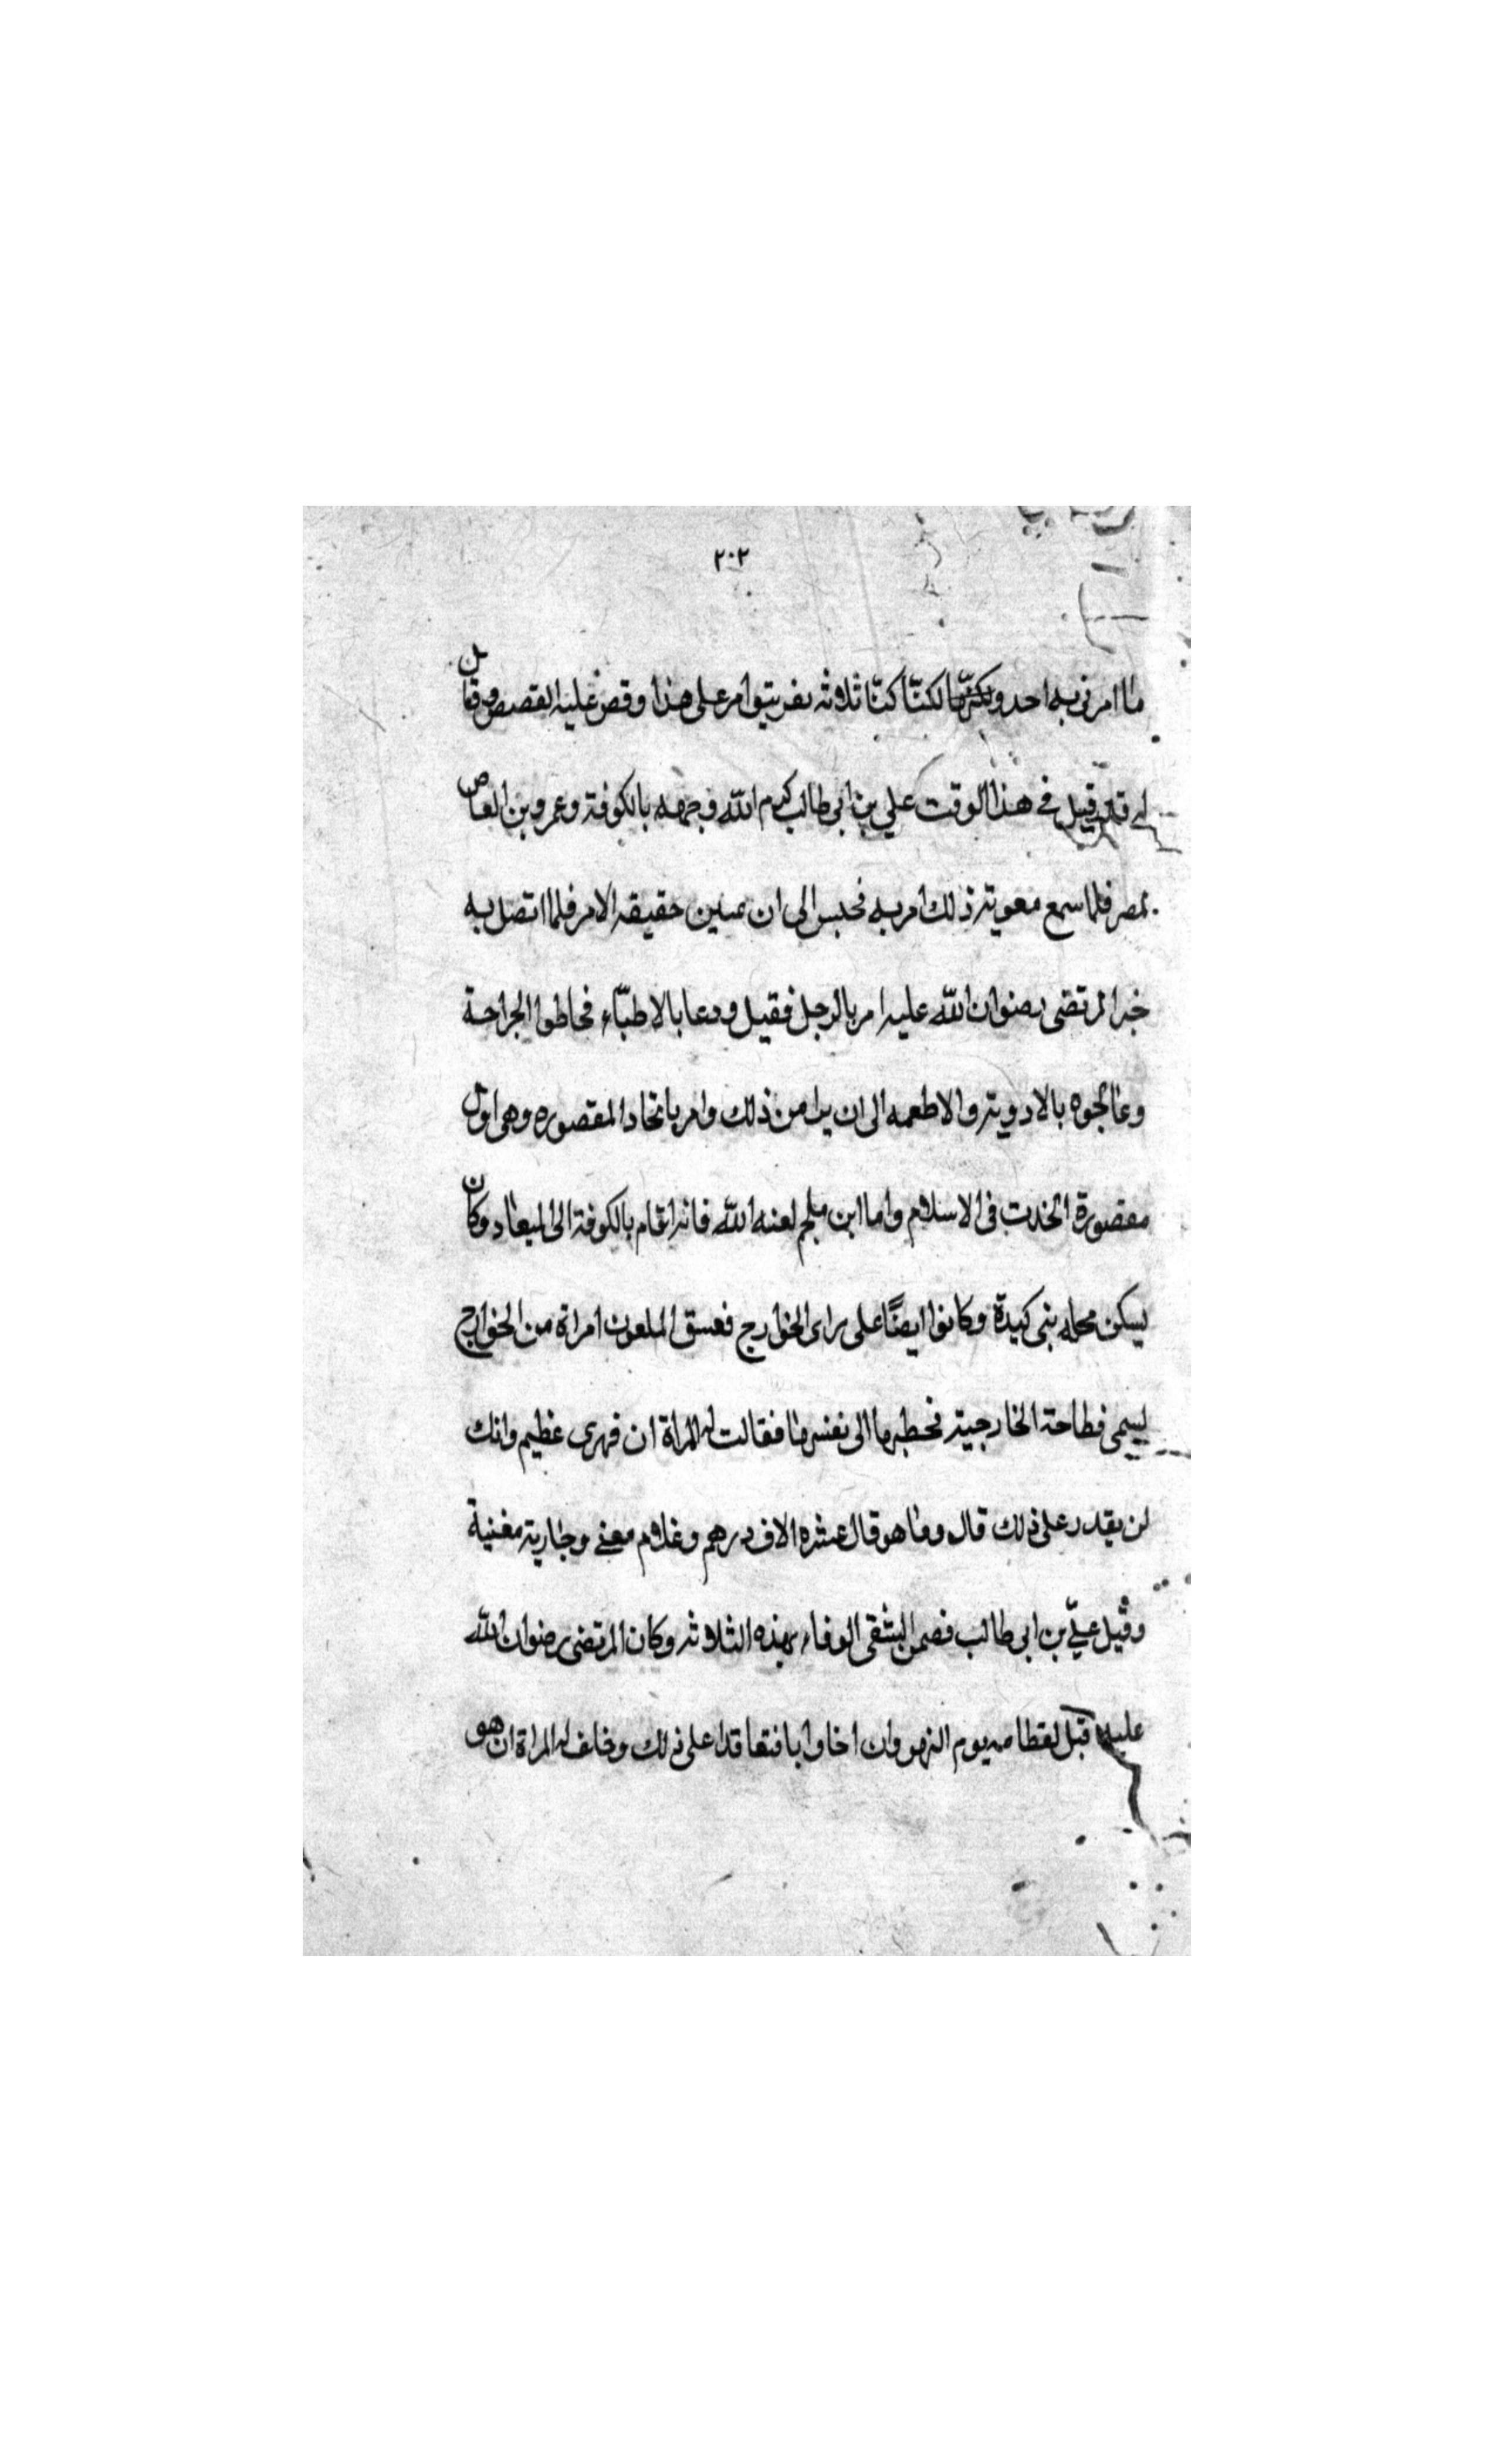 ٢٠٢
ما امرنى به احد ولكنّا كنّا ثلاثه نفر بيتوا امر على هذا وقص عليه القصص وقال
له قد قيل فى هذا الوقت علي بن ابى طالب كرم الله وجهه بالكوفة وعمرو بن العاص
بمصر فلما سمع معوية ذلك امر به فحبس الى ان حقيقه الامر فلما اتصل به
خبر المرتضى رضوان الله عليه امر بالرجل فقيل ودعا بالاطبّاء فخاطوا الجراحة
وعالجوه بالادوية والاطعمه الى ان برا من ذلك وامر باتخاذ المقصوره وهى اول
مقصورة اتخذت فى الاسلام واما ابن ملجم لعنه الله فانه اقام بالكوفة الى الميعاد وكان
يسكن محله بنى كيدة وكانوا ايضًا على راى الخوارج فعسق الملعون امراة من الخوارج
يسمى فطاحة الخارجية فخطبها الى نفسها فقالت له المراة ان فهرى عظيم وانك
لن يقدر على ذلك قال وما هو قال عشره الاف درهم وغلام مغنى وجارية مغنية
وقيل عليّ بن ابى طالب فضمن الشقى الوفاء بهذه الثلاثة وكان المرتضى رضوان الله
عليه قتل لقطامه يوم النهروان اخا وابا فتعاقدا على ذلك وخالف له المراة ان هو